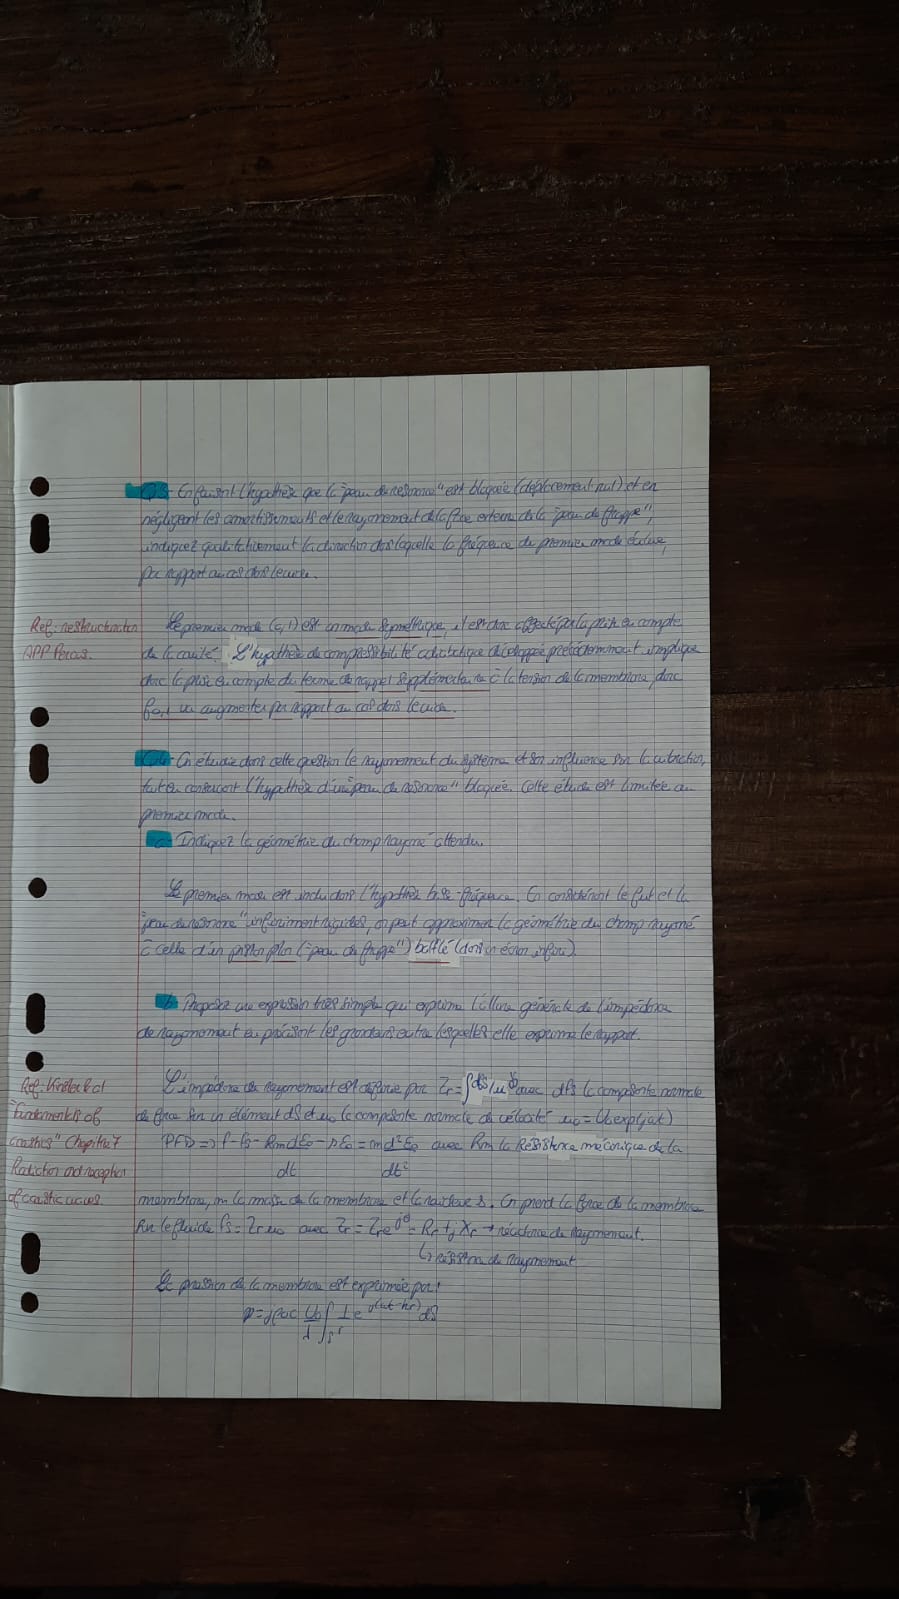 Q3- En faisant l'hypothèse que la "peau de résonance" est bloquée (déplacement nul) et en
négligeant les amortissements et le rayonnement de la face externe de la "peau de frappe",
indiquez qualitativement la direction dans laquelle la fréquence du premier mode évolue,
par rapport au cas dans le vide.
Ref: restructuration
APP Peros.
Le premier mode (0,1) est un mode symétrique, il est donc affecté par la prise en compte
de la cavité. L'hypothèse de compressibilité adiabatique développée précédemment implique
donc la prise en compte du terme de rappel supplémentaire à la tension de la membrane, donc
f0,1 va augmenter par rapport au cas dans le vide.
Q4- On étudie dans cette question le rayonnement du système et son influence sur la vibration,
tout en conservant l'hypothèse d'une "peau de résonance" bloquée. Cette étude est limitée au
premier mode.
a- Indiquez la géométrie du champ rayonné attendu.
Le premier mode est inclu dans l'hypothèse basse-fréquence. En considérant le fut et la
"peau de résonance" infiniment rigides, on peut approximer la géométrie du champ rayonné
à celle d'un piston plan ("peau de frappe") bafflé (dans un écran infini).
b- Proposez une expression très simple qui exprime l'allure générale de l'impédance
de rayonnement en précisant les grandeurs entre lesquelles elle exprime le rapport.
Ref: Kinsler et al
"Fundamentals of
acoustics" Chapitre 7
Radiation and reception
of acoustic waves.
L'impédance de rayonnement est définie par Zr = ∫dfs/u0 avec dfs la composante normale
de force sur un élément dS et u0 la composante normale de vélocité u0 = U0 exp(jωt)
PFD => f - fs - Rm dξ0/dt - s ξ0 = m d²ξ0/dt² avec Rm la Résistance mécanique de la
membrane, m la masse de la membrane et la raideur s. On prend la force de la membrane
sur le fluide fs = Zr u0 avec Zr = Zr e^jθ = Rr + j Xr → réactance de rayonnement.
↳ résistance de rayonnement
La pression de la membrane est exprimée par:
p = jρ0c U0/λ ∫s 1/r e^j(ωt-kr) dS